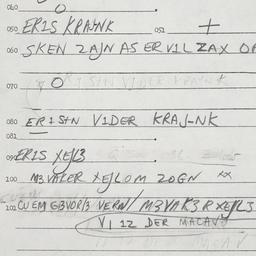 060 O
050 ERIS KRAJNK 052 +
060 SKEN ZAJN AS ER VIL ZAX OF
070 O
080 ERISTN VIDER KRAJ-NK
081
09 ERIS XEJL3
100 M3 VAKER XEJLOM ZOGN xx
101 CU EM G3VOR/3 VERN/ M3VAK3R XEJL3
VI IZ DER MACAV